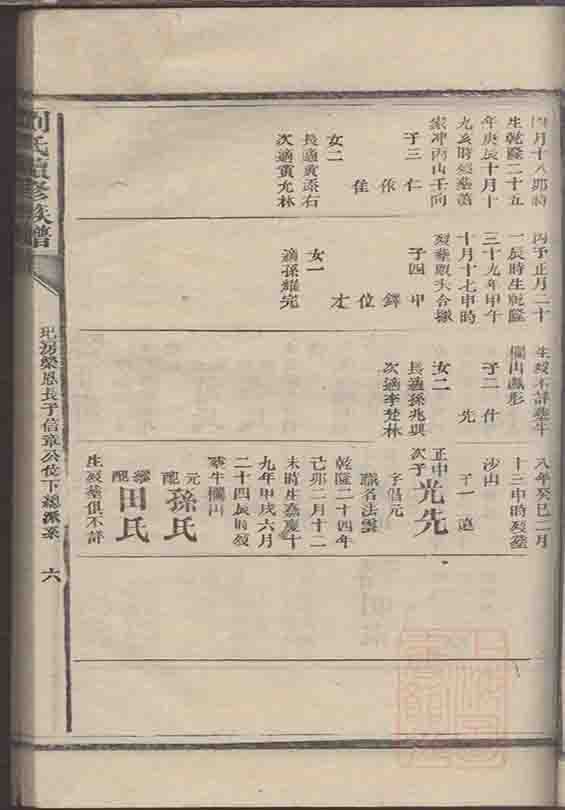 四月十八卯時
生乾隆二十五
年庚辰月十
九亥時歿葬蕭
家冲丙山壬向
子三 仁
依
佳
女二
長適黃添石
次適黃允林
丙子正月二十
一辰時生乾隆
三十九年甲午
十月十七申時
歿葬
子四 甲
鐸
位
才
女一
適孫繼完
生歿不詳葬牛
欄山鳳形
子二 什
先
女二
長適孫兆興
次適李楚林
八年癸巳二月
十三申時歿葬
沙山
子一 遠
正中
次子 光先
字倡元
派名法雲
乾隆二十四年
己卯二月十二
未時生嘉慶十
九年甲戌六月
二十四辰時歿
葬牛欄山
元配 孫氏
繼配 田氏
生歿葬俱不詳
劉氏續修族譜
房榮恩長子信章公位下總派系
六